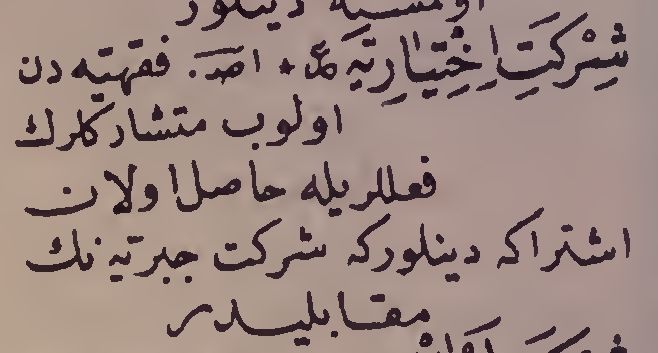 اولمسیله دینلور
شِرْكَتِ اِخْتِیَارِیَّه ع * اصط. فقهیه دن
اولوب متشاركلرك
فعللریله حاصل اولان
اشتراكه دینلوركه شركت جبریه نك
مقابلیدر